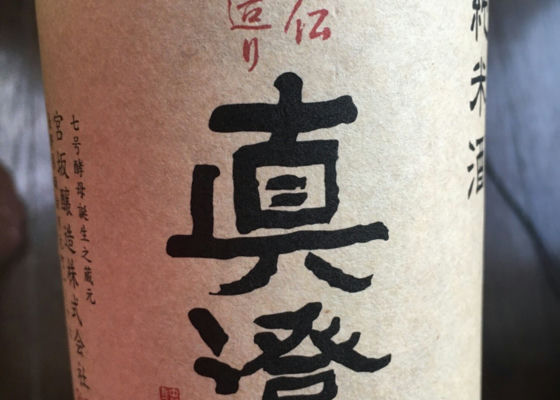 純米酒
伝
造り
真澄
七号酵母誕生之蔵元
宮坂醸造株式会社